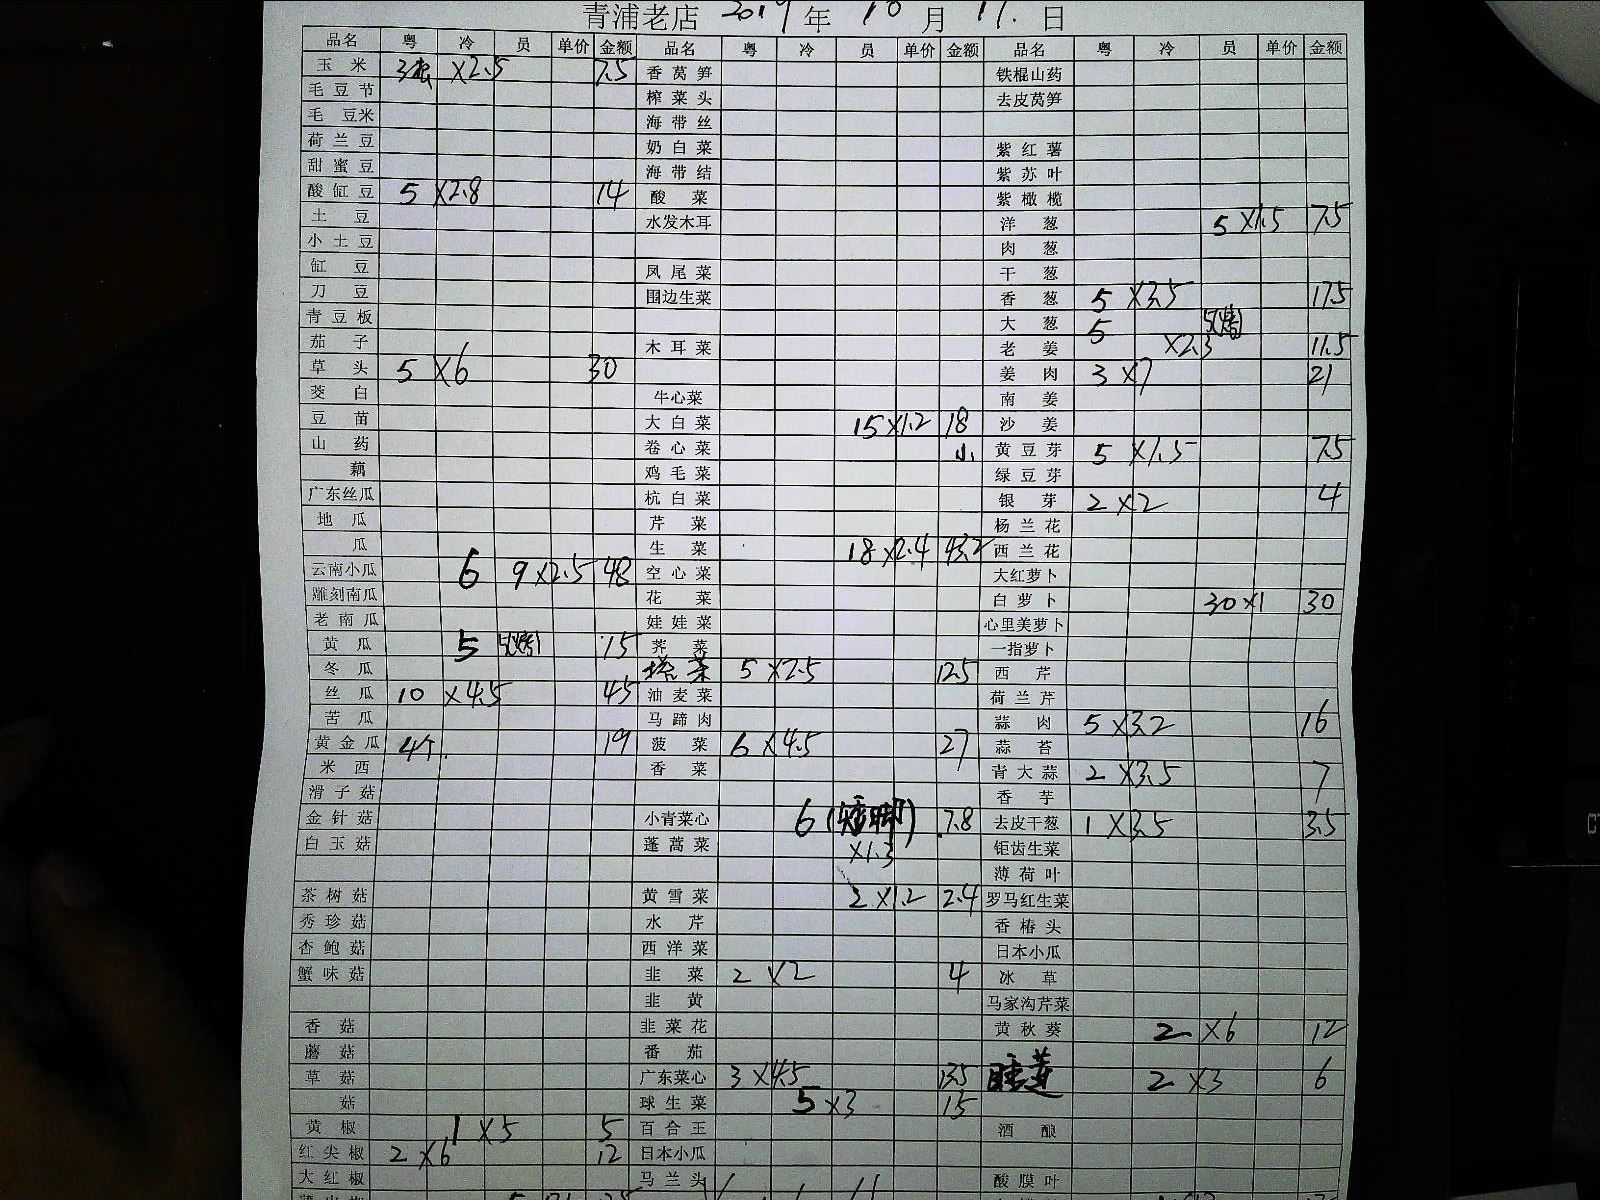 青浦老店 2019年 10月 17.日
品名 粤 冷 员 单价 金额 品名 粤 冷 员 单价 金额 品名 粤 冷 员 单价 金额
玉米 3根 ×2.5 7.5 香莴笋 铁棍山药
毛豆节 榨菜头 去皮莴笋
毛豆米 海带丝
荷兰豆 奶白菜 紫红薯
甜蜜豆 海带结 紫苏叶
酸缸豆 5 ×2.8 14 酸菜 紫橄榄
土豆 水发木耳 洋葱 5 ×1.5 7.5
小土豆 肉葱
缸豆 凤尾菜 干葱
刀豆 围边生菜 香葱 5 ×3.5 17.5
青豆板 大葱 5
茄子 木耳菜 老姜 ×2.3 11.5
草头 5 ×6 30 姜肉 3 ×7 21
茭白 牛心菜 南姜
豆苗 大白菜 15 ×1.2 18 沙姜
山药 卷心菜 小 黄豆芽 5 ×1.5 7.5
藕 鸡毛菜 绿豆芽
广东丝瓜 杭白菜 银芽 2 ×2 4
地瓜 芹菜 杨兰花
瓜 生菜 18 ×2.4 43.2 西兰花
云南小瓜 6 9 ×2.5 48 空心菜 大红萝卜
雕刻南瓜 花菜 白萝卜 30 ×1 30
老南瓜 娃娃菜 心里美萝卜
黄瓜 5 15 荠菜 一指萝卜
冬瓜 塔菜 5 ×2.5 12.5 西芹
丝瓜 10 ×4.5 45 油麦菜 荷兰芹
苦瓜 马蹄肉 蒜肉 5 ×3.2 16
黄金瓜 4个. 19 菠菜 6 ×4.5 27 蒜苔
米西 香菜 青大蒜 2 ×3.5 7
滑子菇 香芋
金针菇 小青菜心 6 (矮脚) 7.8 去皮干葱 1 ×3.5 3.5
白玉菇 蓬蒿菜 ×1.3 钜齿生菜
薄荷叶
茶树菇 黄雪菜 2 ×1.2 2.4 罗马红生菜
秀珍菇 水芹 香椿头
杏鲍菇 西洋菜 日本小瓜
蟹味菇 韭菜 2 ×2 4 冰草
韭黄 马家沟芹菜
香菇 韭菜花 黄秋葵 2 ×6 12
蘑菇 番茄
草菇 广东菜心 3 ×4.5 13.5 睡莲 2 ×3 6
菇 球生菜 5 ×3 15
黄椒 1 ×5 5 百合王 酒酿
红尖椒 2 ×6 12 日本小瓜
大红椒 马兰头 酸膜叶